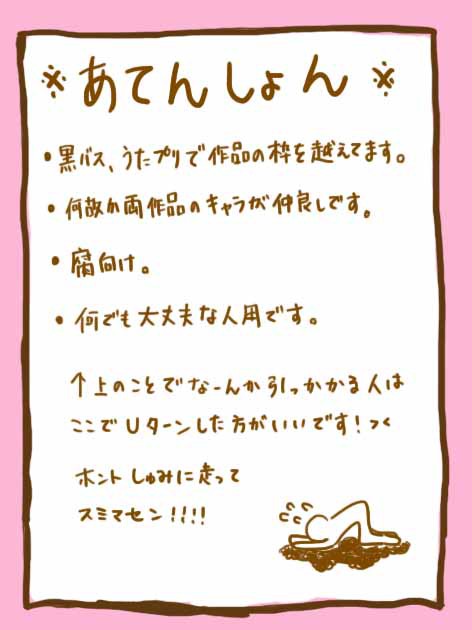 ※あてんしょん※
・黒バス、うたプリで作品の枠を越えてます。
・何故か両作品のキャラが仲良しです。
・腐向け。
・何でも大丈夫な人用です。
↑上のことでなーんか引っかかる人は
ここでUターンした方がいいです！つく
ホントしゅみに走って
スミマセン!!!!